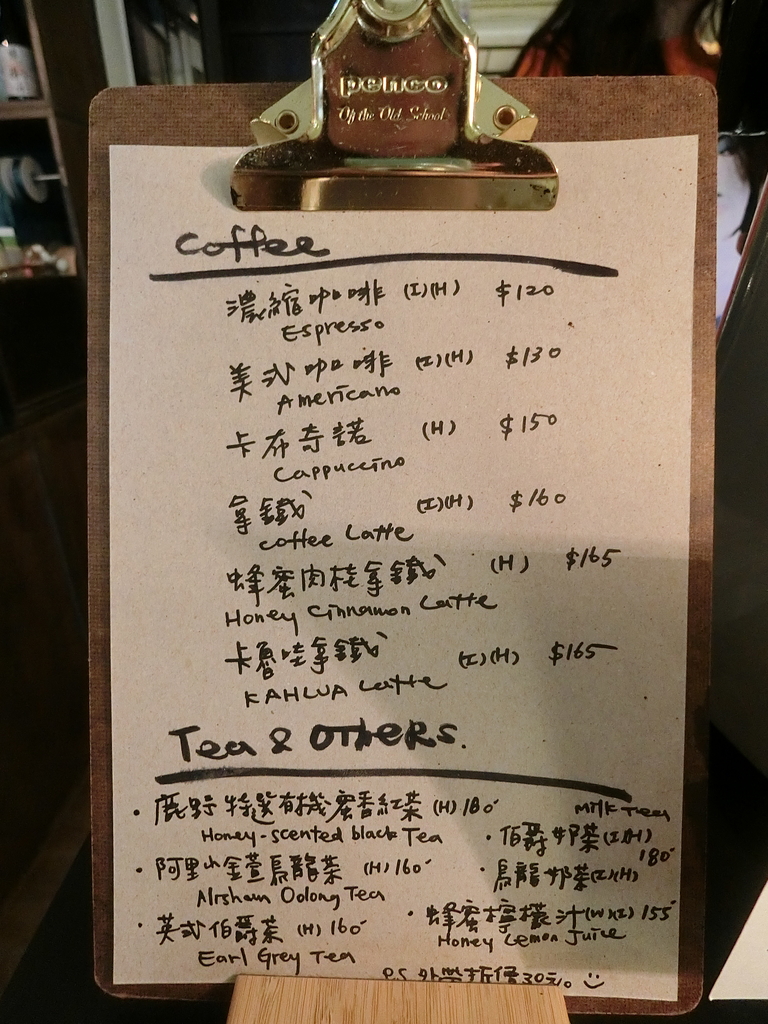 penco
Of the Old School
Coffee
濃縮咖啡 (I)(H) $120
Espresso
美式咖啡 (I)(H) $130
Americano
卡布奇諾 (H) $150
Cappuccino
拿鐵 (I)(H) $160
coffee Latte
蜂蜜肉桂拿鐵 (H) $165
Honey Cinnamon Latte
卡魯哇拿鐵 (I)(H) $165
KAHLUA Latte
Tea & OTHERS.
• 鹿野特選有機蜜香紅茶 (H) 180
Honey-scented black Tea
• 阿里山金萱烏龍茶 (H) 160
Alishan Oolong Tea
• 英式伯爵茶 (H) 160
Earl Grey Tea
Milk Tea
• 伯爵奶茶 (I)(H)
180
• 烏龍奶茶 (I)(H)
• 蜂蜜檸檬汁 (W)(I) 155
Honey Lemon Juice
P.S. 外帶折價30元。